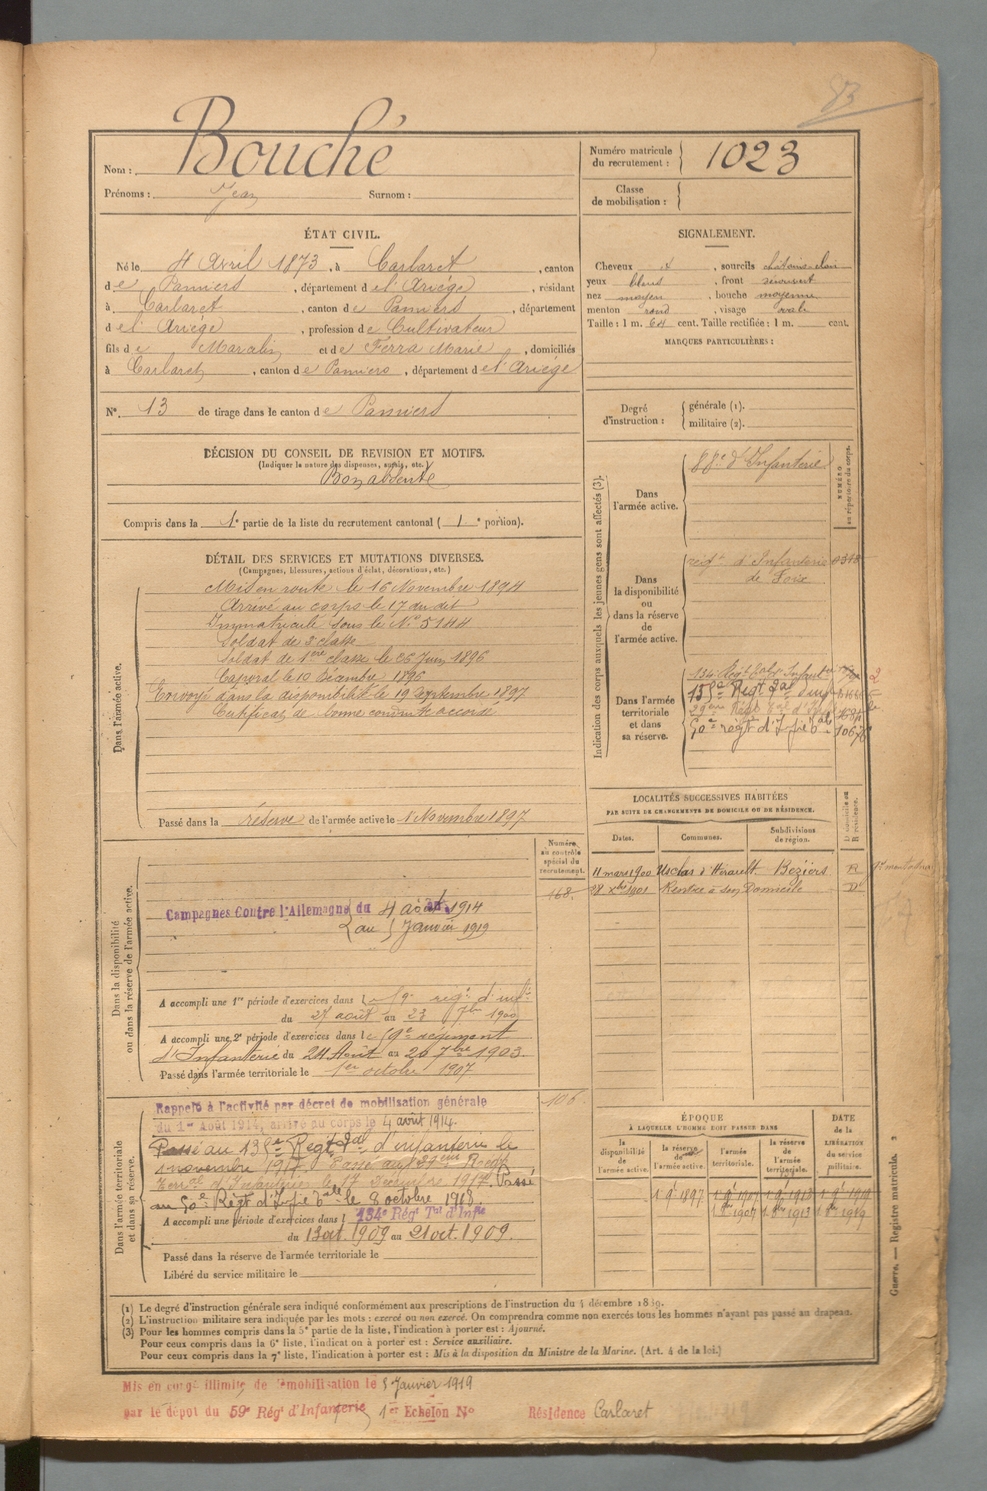 83
Nom : Bouché
Prénoms : Jean Surnom :
Numéro matricule du recrutement : 1023
Classe de mobilisation :
ÉTAT CIVIL.
Né le 4 Avril 1873, à Carlaret, canton
de Pamiers, département de l'Ariège, résidant
à Carlaret, canton de Pamiers, département
de l'Ariège, profession de Cultivateur
fils de Marcelin et de Ferra Marie, domiciliés
à Carlaret, canton de Pamiers, département de l'Ariège
N°. 13 de tirage dans le canton de Pamiers
SIGNALEMENT.
Cheveux et, sourcils châtains-clair
yeux bleus, front
nez moyen, bouche moyenne
menton rond, visage ovale
Taille : 1 m. 64 cent. Taille rectifiée : 1 m. cent.
MARQUES PARTICULIÈRES :
Degré d'instruction : générale (1).
militaire (2).
DÉCISION DU CONSEIL DE REVISION ET MOTIFS.
(Indiquer la nature des dispenses, sursis, etc.)
Bon absent
Compris dans la 1e partie de la liste du recrutement cantonal (1e portion).
DÉTAIL DES SERVICES ET MUTATIONS DIVERSES.
(Campagnes, blessures, actions d'éclat, décorations, etc.)
Dans l'armée active.
Mis en route le 16 Novembre 1894
Arrivé au corps le 17 du dit
Immatriculé sous le N° 5144
Soldat de 2e classe
Soldat de 1ère classe le 26 Juin 1896
Caporal le 10 Décembre 1896
Envoyé dans la disponibilité le 19 Septembre 1897
Certificat de bonne conduite accordé
Passé dans la réserve de l'armée active le 1 Novembre 1897
Indication des corps auxquels les jeunes gens sont affectés (3).
NUMÉRO au répertoire du corps.
Dans l'armée active.
88e d'Infanterie
Dans la disponibilité ou dans la réserve de l'armée active.
régt d'Infanterie
de Foix
Dans l'armée territoriale et dans sa réserve.
134e Régt
135e Regt Tal d'inf
50e régt d'Infie Tale
LOCALITÉS SUCCESSIVES HABITÉES
PAR SUITE DE CHANGEMENTS DE DOMICILE OU DE RÉSIDENCE.
Dates. Communes. Subdivisions de région. D domicile ou R résidence.
11 mars 1900 Usclas d'Hérault Béziers R
28 Xbre 1901 Rentre à son Domicile D
Dans la disponibilité ou dans la réserve de l'armée active.
Numéro au contrôle spécial du recrutement.
168
Campagnes Contre l'Allemagne du 4 août 1914
au 5 Janvier 1919
A accompli une 1re période d'exercices dans le 59e régt d'infie
du 27 août au 23 7bre 1900
A accompli une 2e période d'exercices dans le 59e régiment
d'Infanterie du 24 Août au 20 7bre 1903.
Passé dans l'armée territoriale le 1er octobre 1907
Dans l'armée territoriale et dans sa réserve.
106
Rappelé à l'activité par décret de mobilisation générale
du 1er Août 1914, arrivé au corps le 4 août 1914.
Passé au 135e Regt Tal d'infanterie le
1 novembre 1917. Passé au 129eme Regt
Terral d'Infanterie le 17 Décembre 1917. Passé
au 50e Régt d'Infie Tale le 8 octobre 1918.
A accompli une période d'exercices dans l 134e Régt Tal d'Infie
du 13 oct. 1909 au 21 oct. 1909.
Passé dans la réserve de l'armée territoriale le
Libéré du service militaire le
ÉPOQUE
À LAQUELLE L'HOMME DOIT PASSER DANS
la disponibilité de l'armée active. la réserve de l'armée active. l'armée territoriale. la réserve de l'armée territoriale.
DATE de la LIBÉRATION du service militaire.
1 9bre 1897 1 9bre 1907 1 9bre 1913 1 9bre 1919
1 8bre 1907 1 8bre 1913 1 8bre 1919
Guerre. — Registre matricule.
(1) Le degré d'instruction générale sera indiqué conformément aux prescriptions de l'instruction du 4 décembre 1889.
(2) L'instruction militaire sera indiquée par les mots : exercé ou non exercé. On comprendra comme non exercés tous les hommes n'ayant pas passé au drapeau.
(3) Pour les hommes compris dans la 5e partie de la liste, l'indication à porter est : Ajourné.
Pour ceux compris dans la 6e liste, l'indication à porter est : Service auxiliaire.
Pour ceux compris dans la 7e liste, l'indication à porter est : Mis à la disposition du Ministre de la Marine. (Art. 4 de la loi.)
Mis en congé illimité de démobilisation le 5 Janvier 1919
par le dépôt du 59e Régt d'Infanterie 1er Echelon N° Résidence Carlaret